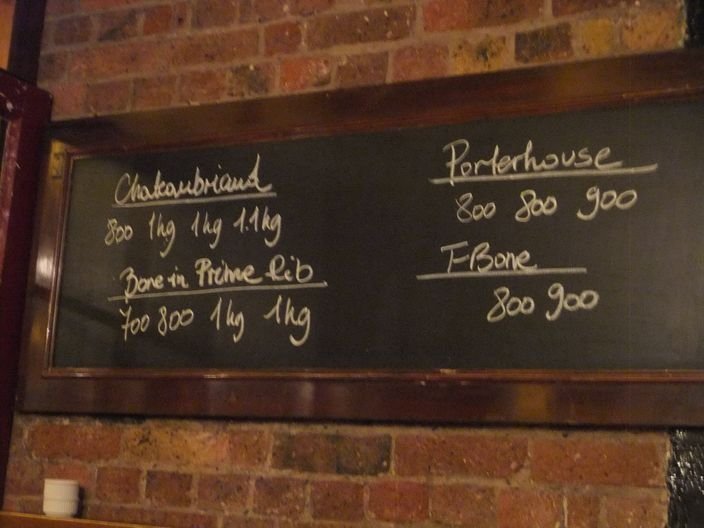 Chateaubriand
800 1kg 1kg 1.1kg
Bone in Prime Rib
700 800 1kg 1kg
Porterhouse
800 800 900
T-Bone
800 900